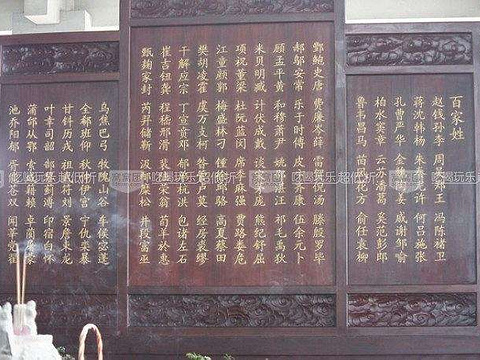 百家姓
赵钱孙李 周吴郑王 冯陈褚卫
蒋沈韩杨 朱秦尤许 何吕施张
孔曹严华 金魏陶姜 戚谢邹喻
柏水窦章 云苏潘葛 奚范彭郎
鲁韦昌马 苗凤花方 俞任袁柳
酆鲍史唐 费廉岑薛 雷贺倪汤 滕殷罗毕
郝邬安常 乐于时傅 皮卞齐康 伍余元卜
顾孟平黄 和穆萧尹 姚邵湛汪 祁毛禹狄
米贝明臧 计伏成戴 谈宋茅庞 熊纪舒屈
项祝董梁 杜阮蓝闵 席季麻强 贾路娄危
江童颜郭 梅盛林刁 钟徐邱骆 高夏蔡田
樊胡凌霍 虞万支柯 昝管卢莫 经房裘缪
干解应宗 丁宣贲邓 郁单杭洪 包诸左石
崔吉钮龚 程嵇邢滑 裴陆荣翁 荀羊於惠
甄麴家封 芮羿储靳 汲邴糜松 井段富巫
乌焦巴弓 牧隗山谷 车侯宓蓬
全郗班仰 秋仲伊宫 宁仇栾暴
甘钭历戎 祖武符刘 景詹束龙
叶幸司韶 郜黎蓟溥 印宿白怀
蒲邰从鄂 索咸籍赖 卓蔺屠蒙
池乔阳郁 胥能苍双 闻莘党翟
吃喝玩乐超低折